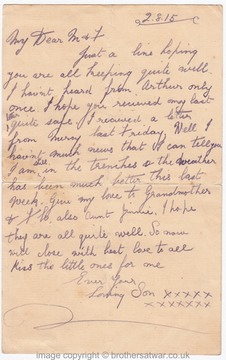 2.8.15
My Dear M & F
Just a line hoping
you are all keeping quite well.
I havnt heard from Arthur only
once. I hope you received my last
quite safe. I received a letter
from last Friday. Well I
havnt much news that I can tell you
I am still in the trenches & the weather
has been much better this last
week. Give my love to Grandmother
& also Aunt I hope
they are all quite well. So now
will close with best love to all
Kiss the little ones for me
Ever Your
Loving Son xxxxx
xxxxxxx
image copyright © brothersatwar.co.uk